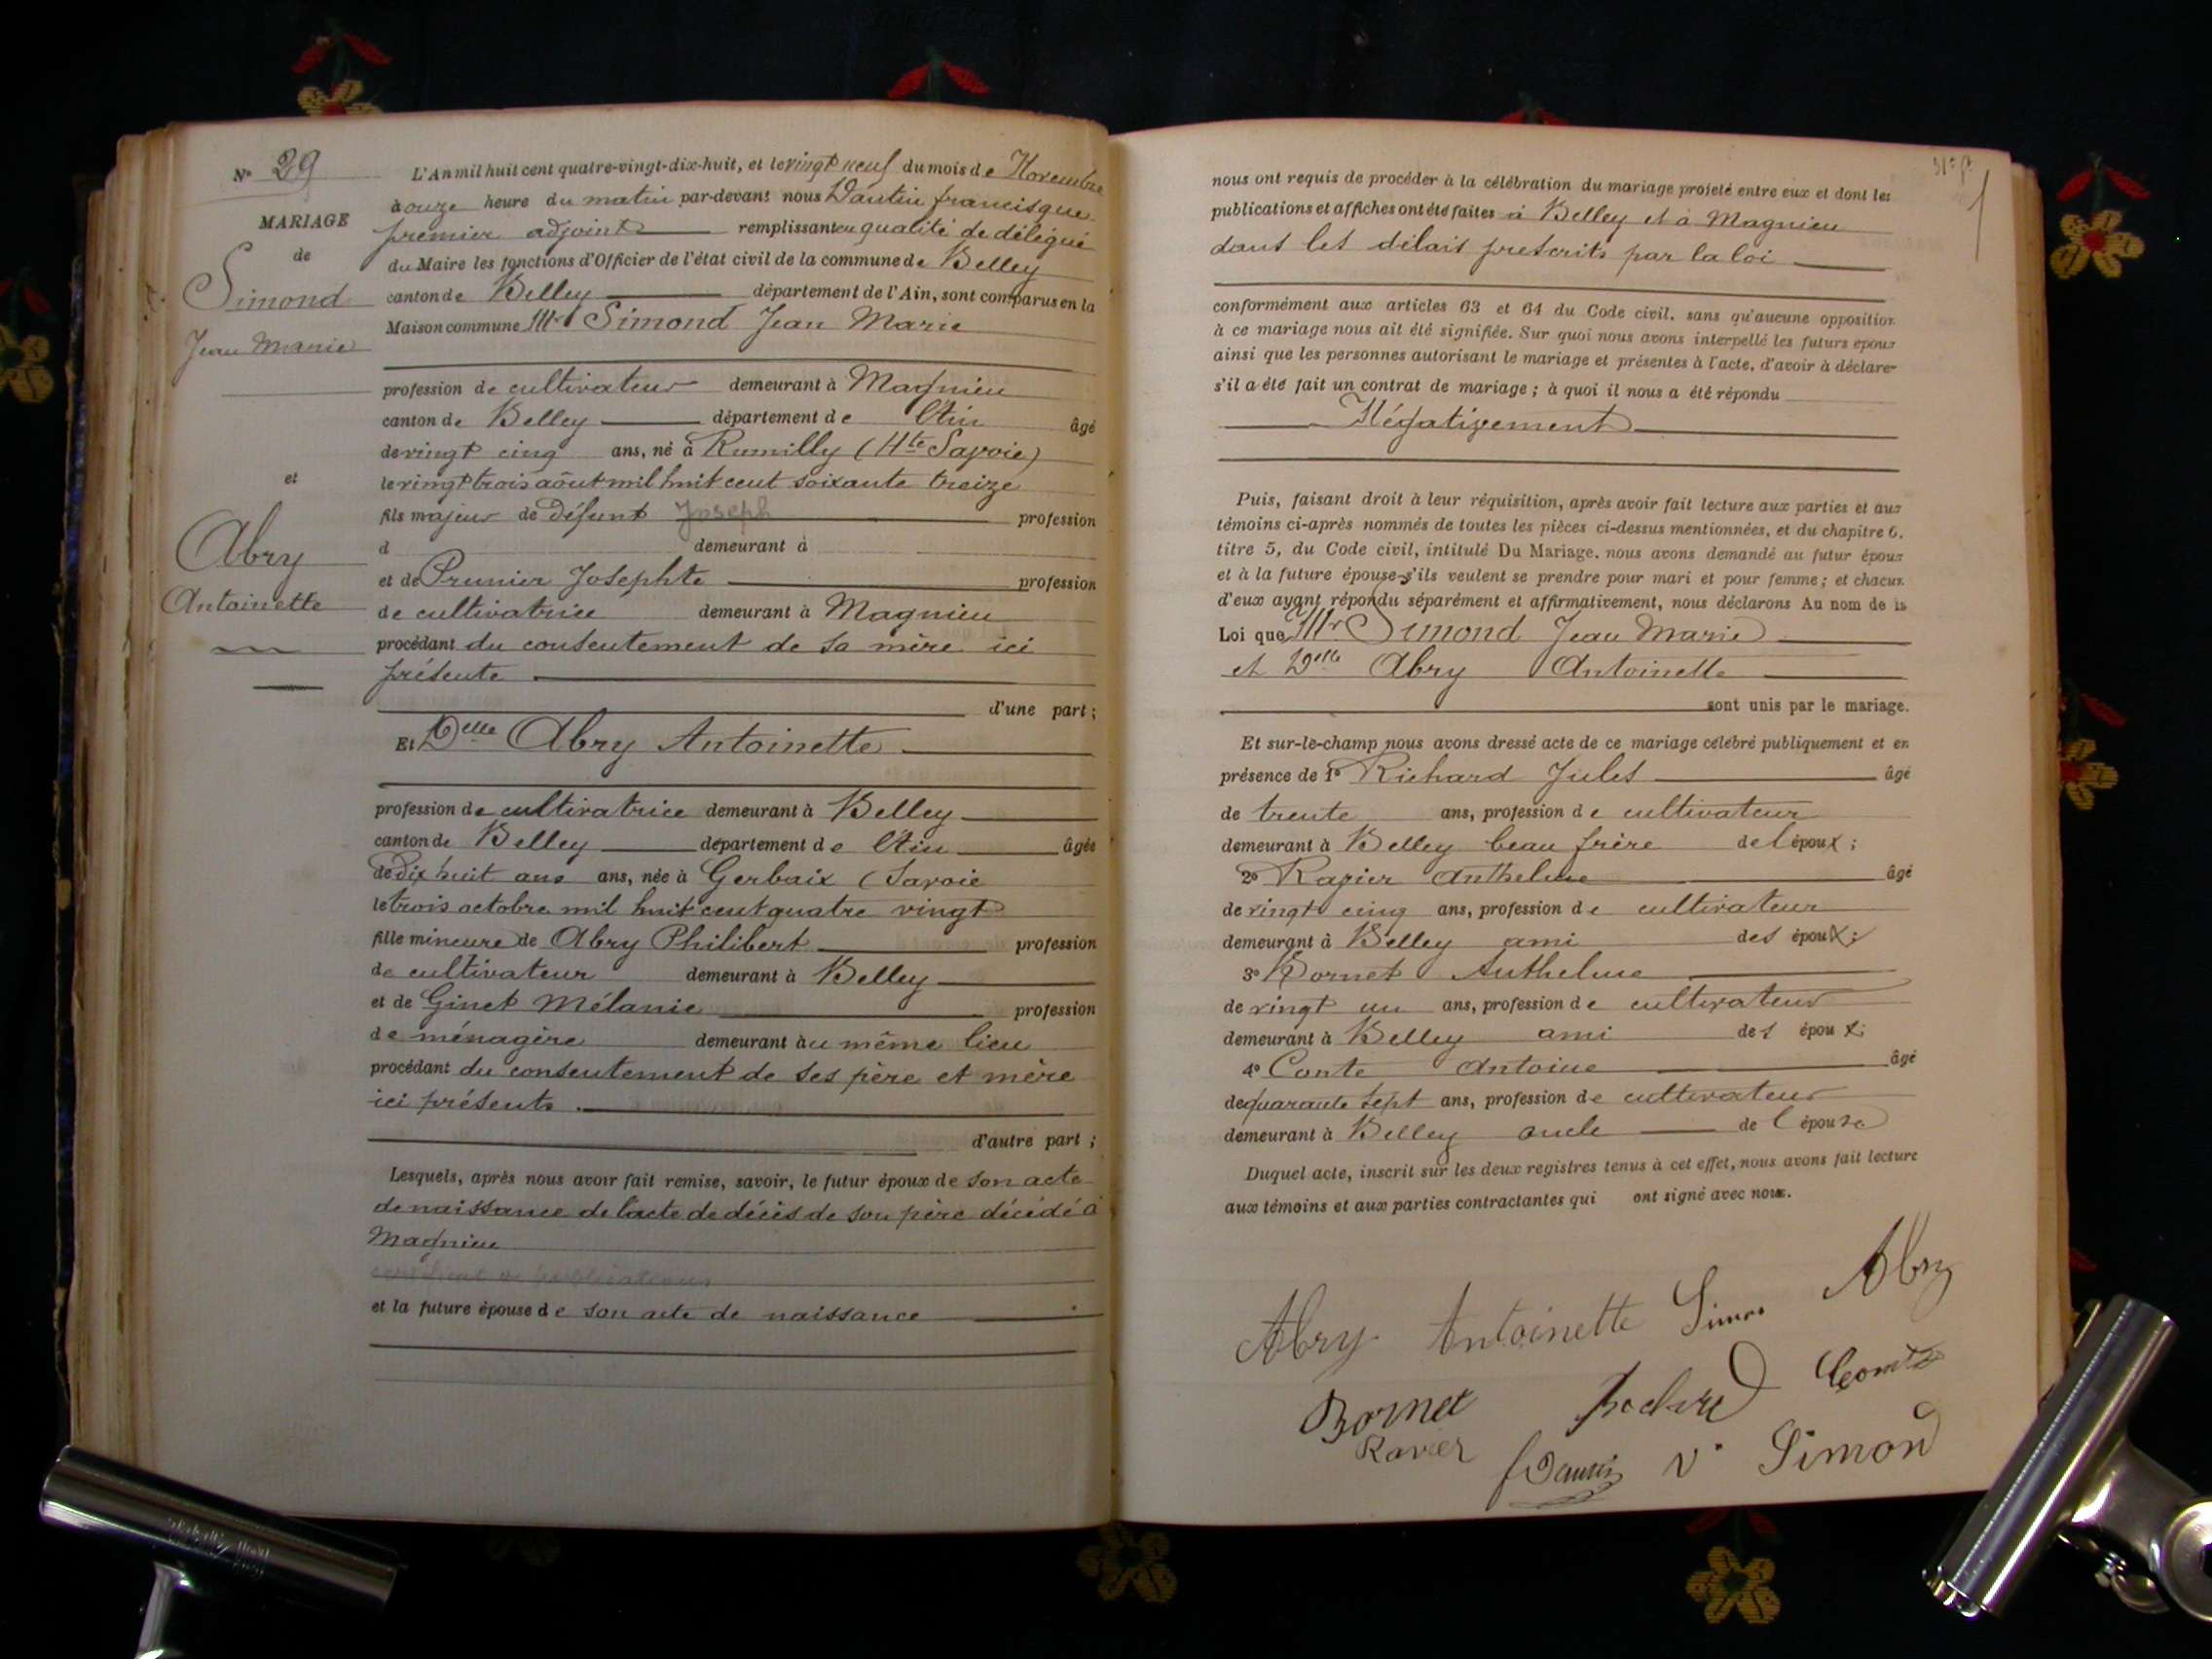 N° 29
MARIAGE
de
Simond
Jean Marie
et
Abry
Antoinette
L'An mil huit cent quatre-vingt-dix-huit, et le vingt neuf du mois de Novembre
à onze heure du matin par-devant nous Dautin francisque
premier adjoint remplissant en qualité de délégué
du Maire les fonctions d'Officier de l'état civil de la commune de Belley
canton de Belley département de l'Ain, sont comparus en la
Maison commune Mr Simond Jean Marie
profession de cultivateur demeurant à Magnieu
canton de Belley département de l'Ain âgé
de vingt cinq ans, né à Rumilly (Hte Savoie)
le vingt trois août mil huit cent soixante treize
fils majeur de Défunt Joseph profession
d demeurant à
et de Prunier Josephte profession
de cultivatrice demeurant à Magnieu
procédant du consentement de sa mère ici
présente
d'une part ;
Et Delle Abry Antoinette
profession de cultivatrice demeurant à Belley
canton de Belley département de l'Ain âgée
de dix huit ans ans, née à Gerbaix (Savoie
le trois octobre mil huit cent quatre vingt
fille mineure de Abry Philibert profession
de cultivateur demeurant à Belley
et de Ginet Mélanie profession
de ménagère demeurant au même lieu
procédant du consentement de ses père et mère
ici présents.
d'autre part ;
Lesquels, après nous avoir fait remise, savoir, le futur époux de son acte
de naissance de l'acte de décès de son père décédé à
Magnieu
et la future épouse de son acte de naissance
nous ont requis de procéder à la célébration du mariage projeté entre eux et dont les
publications et affiches ont été faites à Belley et à Magnieu
dans les délais prescrits par la loi
conformément aux articles 63 et 64 du Code civil, sans qu'aucune opposition
à ce mariage nous ait été signifiée. Sur quoi nous avons interpellé les futurs epoux
ainsi que les personnes autorisant le mariage et présentes à l'acte, d'avoir à déclarer
s'il a été fait un contrat de mariage ; à quoi il nous a été répondu
Négativement
Puis, faisant droit à leur réquisition, après avoir fait lecture aux parties et aux
témoins ci-après nommés de toutes les pièces ci-dessus mentionnées, et du chapitre 6,
titre 5, du Code civil, intitulé Du Mariage, nous avons demandé au futur époux
et à la future épouse s'ils veulent se prendre pour mari et pour femme ; et chacun
d'eux ayant répondu séparément et affirmativement, nous déclarons Au nom de la
Loi que Mr Simond Jean Marie
et Delle Abry Antoinette
sont unis par le mariage.
Et sur-le-champ nous avons dressé acte de ce mariage célébré publiquement et en
présence de 1° Richard Jules âgé
de trente ans, profession de cultivateur
demeurant à Belley beau frère de l'époux ;
2° Ravier Anthelme âgé
de vingt cinq ans, profession de cultivateur
demeurant à Belley ami des époux ;
3° Bornet Anthelme
de vingt un ans, profession de cultivateur
demeurant à Belley ami des époux ;
4° Conte Antoine âgé
de quarante sept ans, profession de cultivateur
demeurant à Belley oncle de l'épouse
Duquel acte, inscrit sur les deux registres tenus à cet effet, nous avons fait lecture
aux témoins et aux parties contractantes qui ont signé avec nous.
Abry Antoinette Simon Abry
Bornet Richard Comte
Ravier Dautin Ve Simond